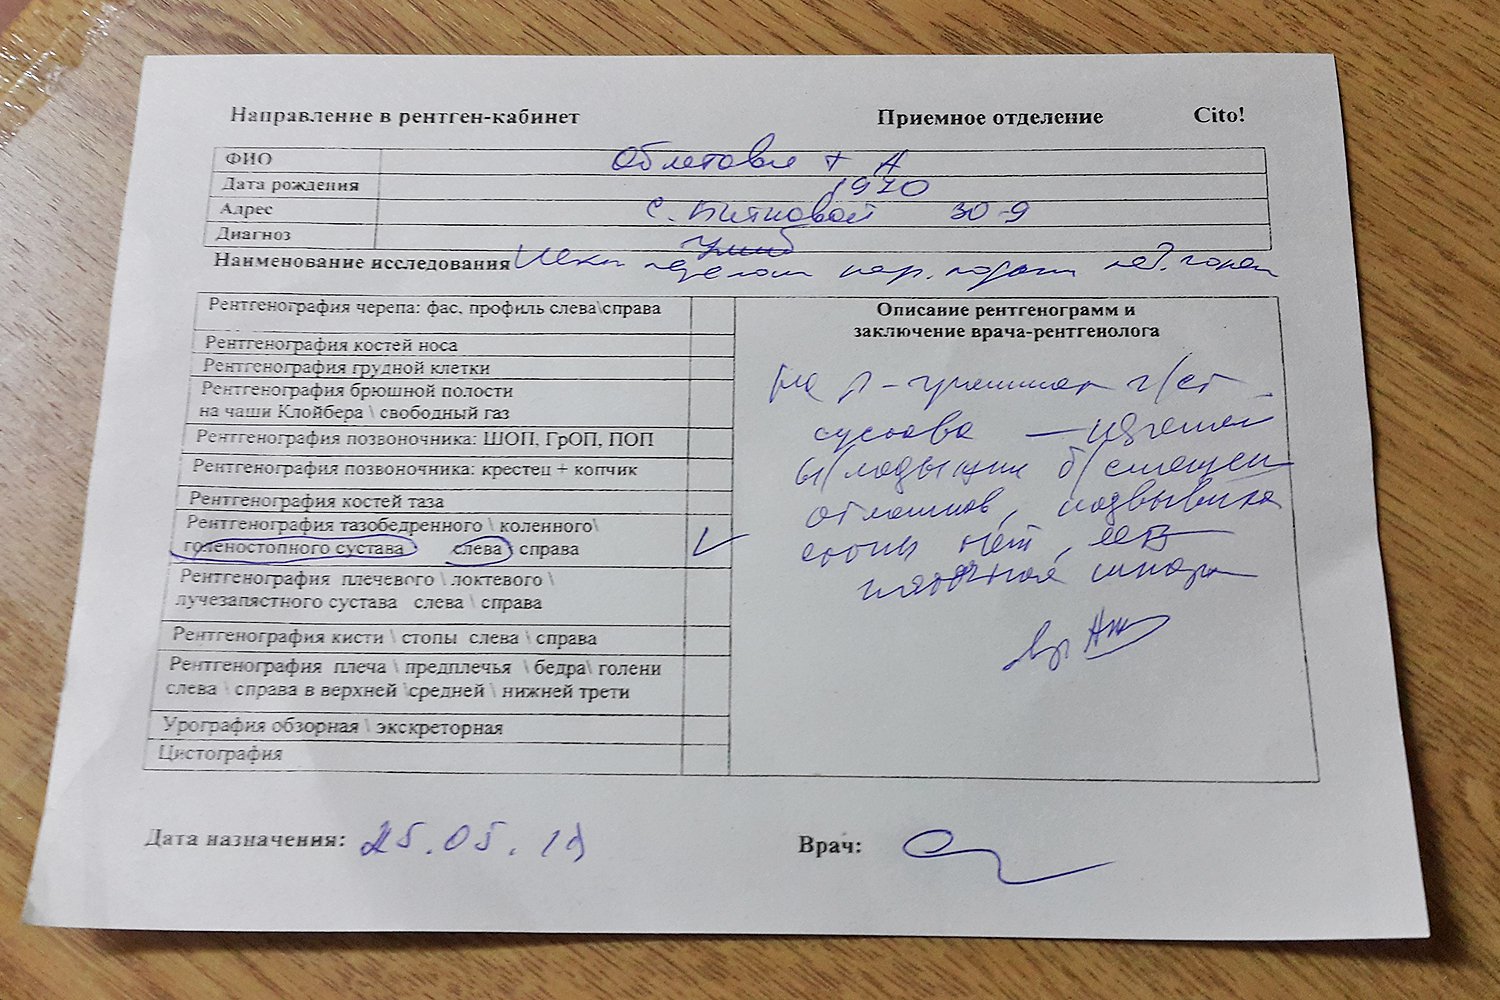 Направление в рентген-кабинет Приемное отделение Cito!
ФИО А
Дата рождения 1970
Адрес 30-9
Диагноз ушиб
Наименование исследования
Рентгенография черепа: фас, профиль слева\справа
Рентгенография костей носа
Рентгенография грудной клетки
Рентгенография брюшной полости
на чаши Клойбера \ свободный газ
Рентгенография позвоночника: ШОП, ГрОП, ПОП
Рентгенография позвоночника: крестец + копчик
Рентгенография костей таза
Рентгенография тазобедренного \ коленного\
голеностопного сустава слева \ справа
Рентгенография плечевого \ локтевого \
лучезапястного сустава слева \ справа
Рентгенография кисти \ стопы слева \ справа
Рентгенография плеча \ предплечья \ бедра\ голени
слева \ справа в верхней \средней \ нижней трети
Урография обзорная \ экскреторная
Цистография
Описание рентгенограмм и
заключение врача-рентгенолога
На г/ст
сустава —
б/смещен
отломков, подвывиха
стопы нет, есть
пяточная шпора
Дата назначения: 25.05.19 Врач: